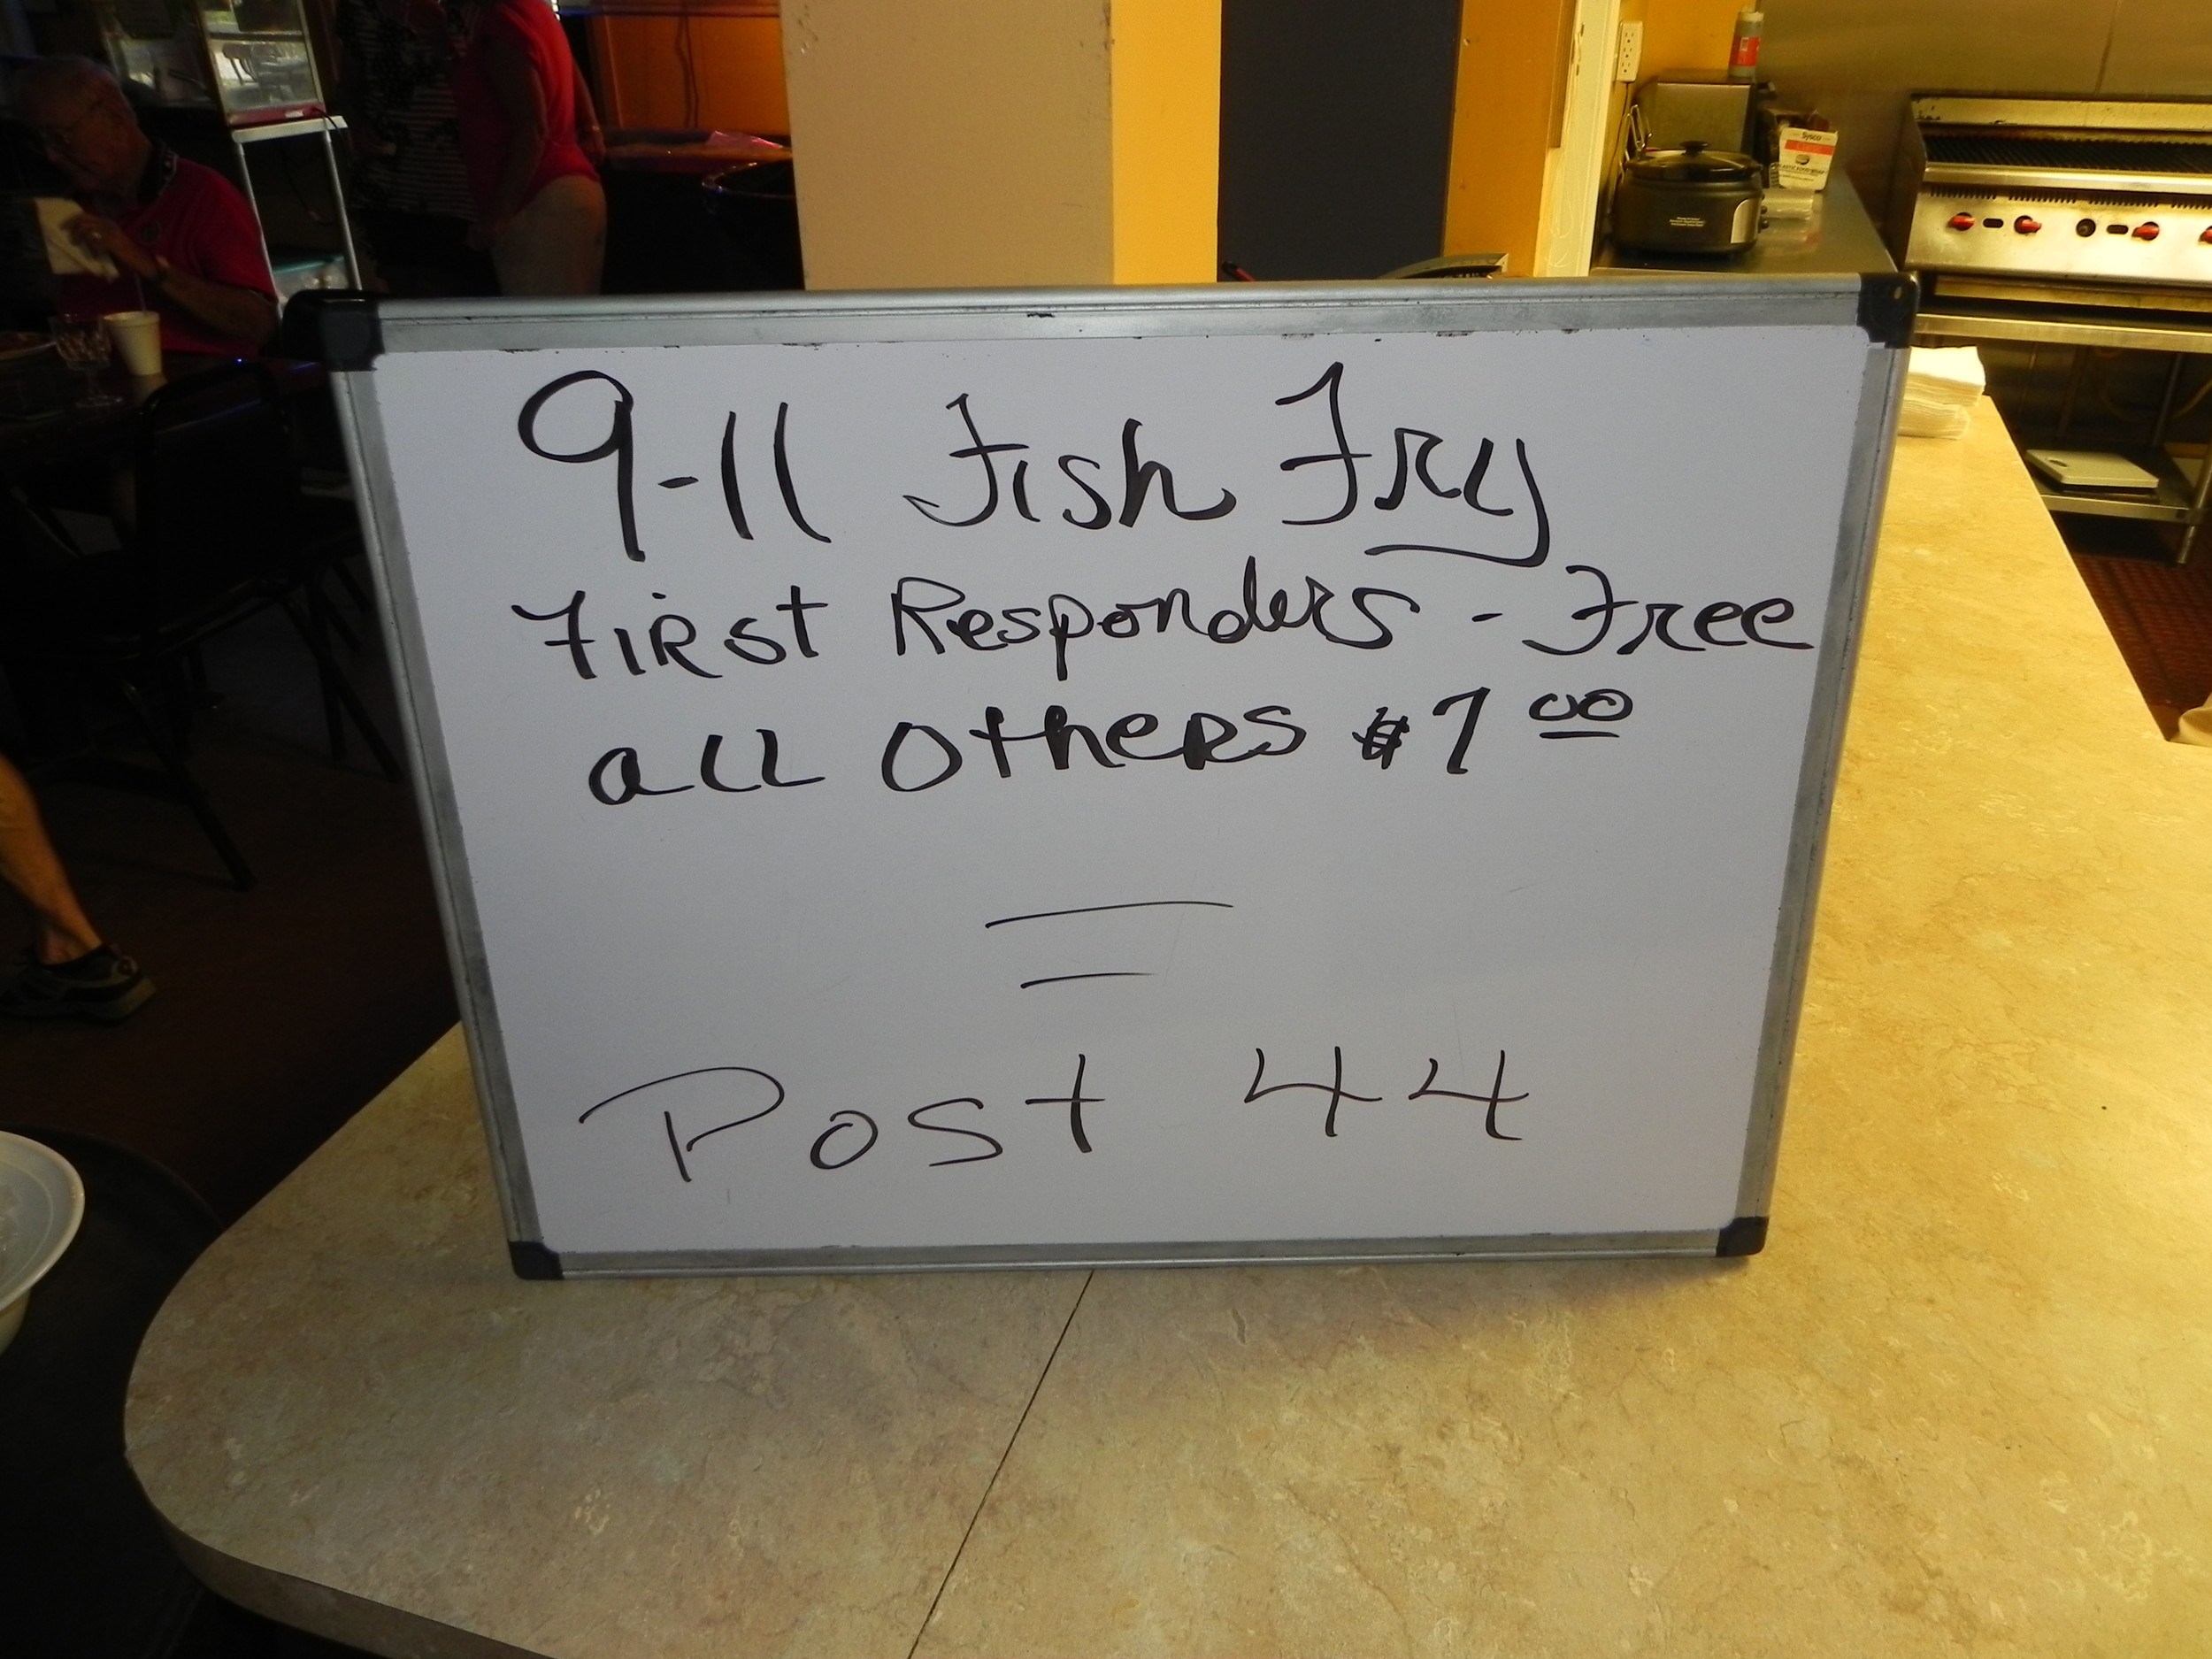 9-11 Fish Fry
First Responders - Free
all Others $7 00
Post 44
Sysco